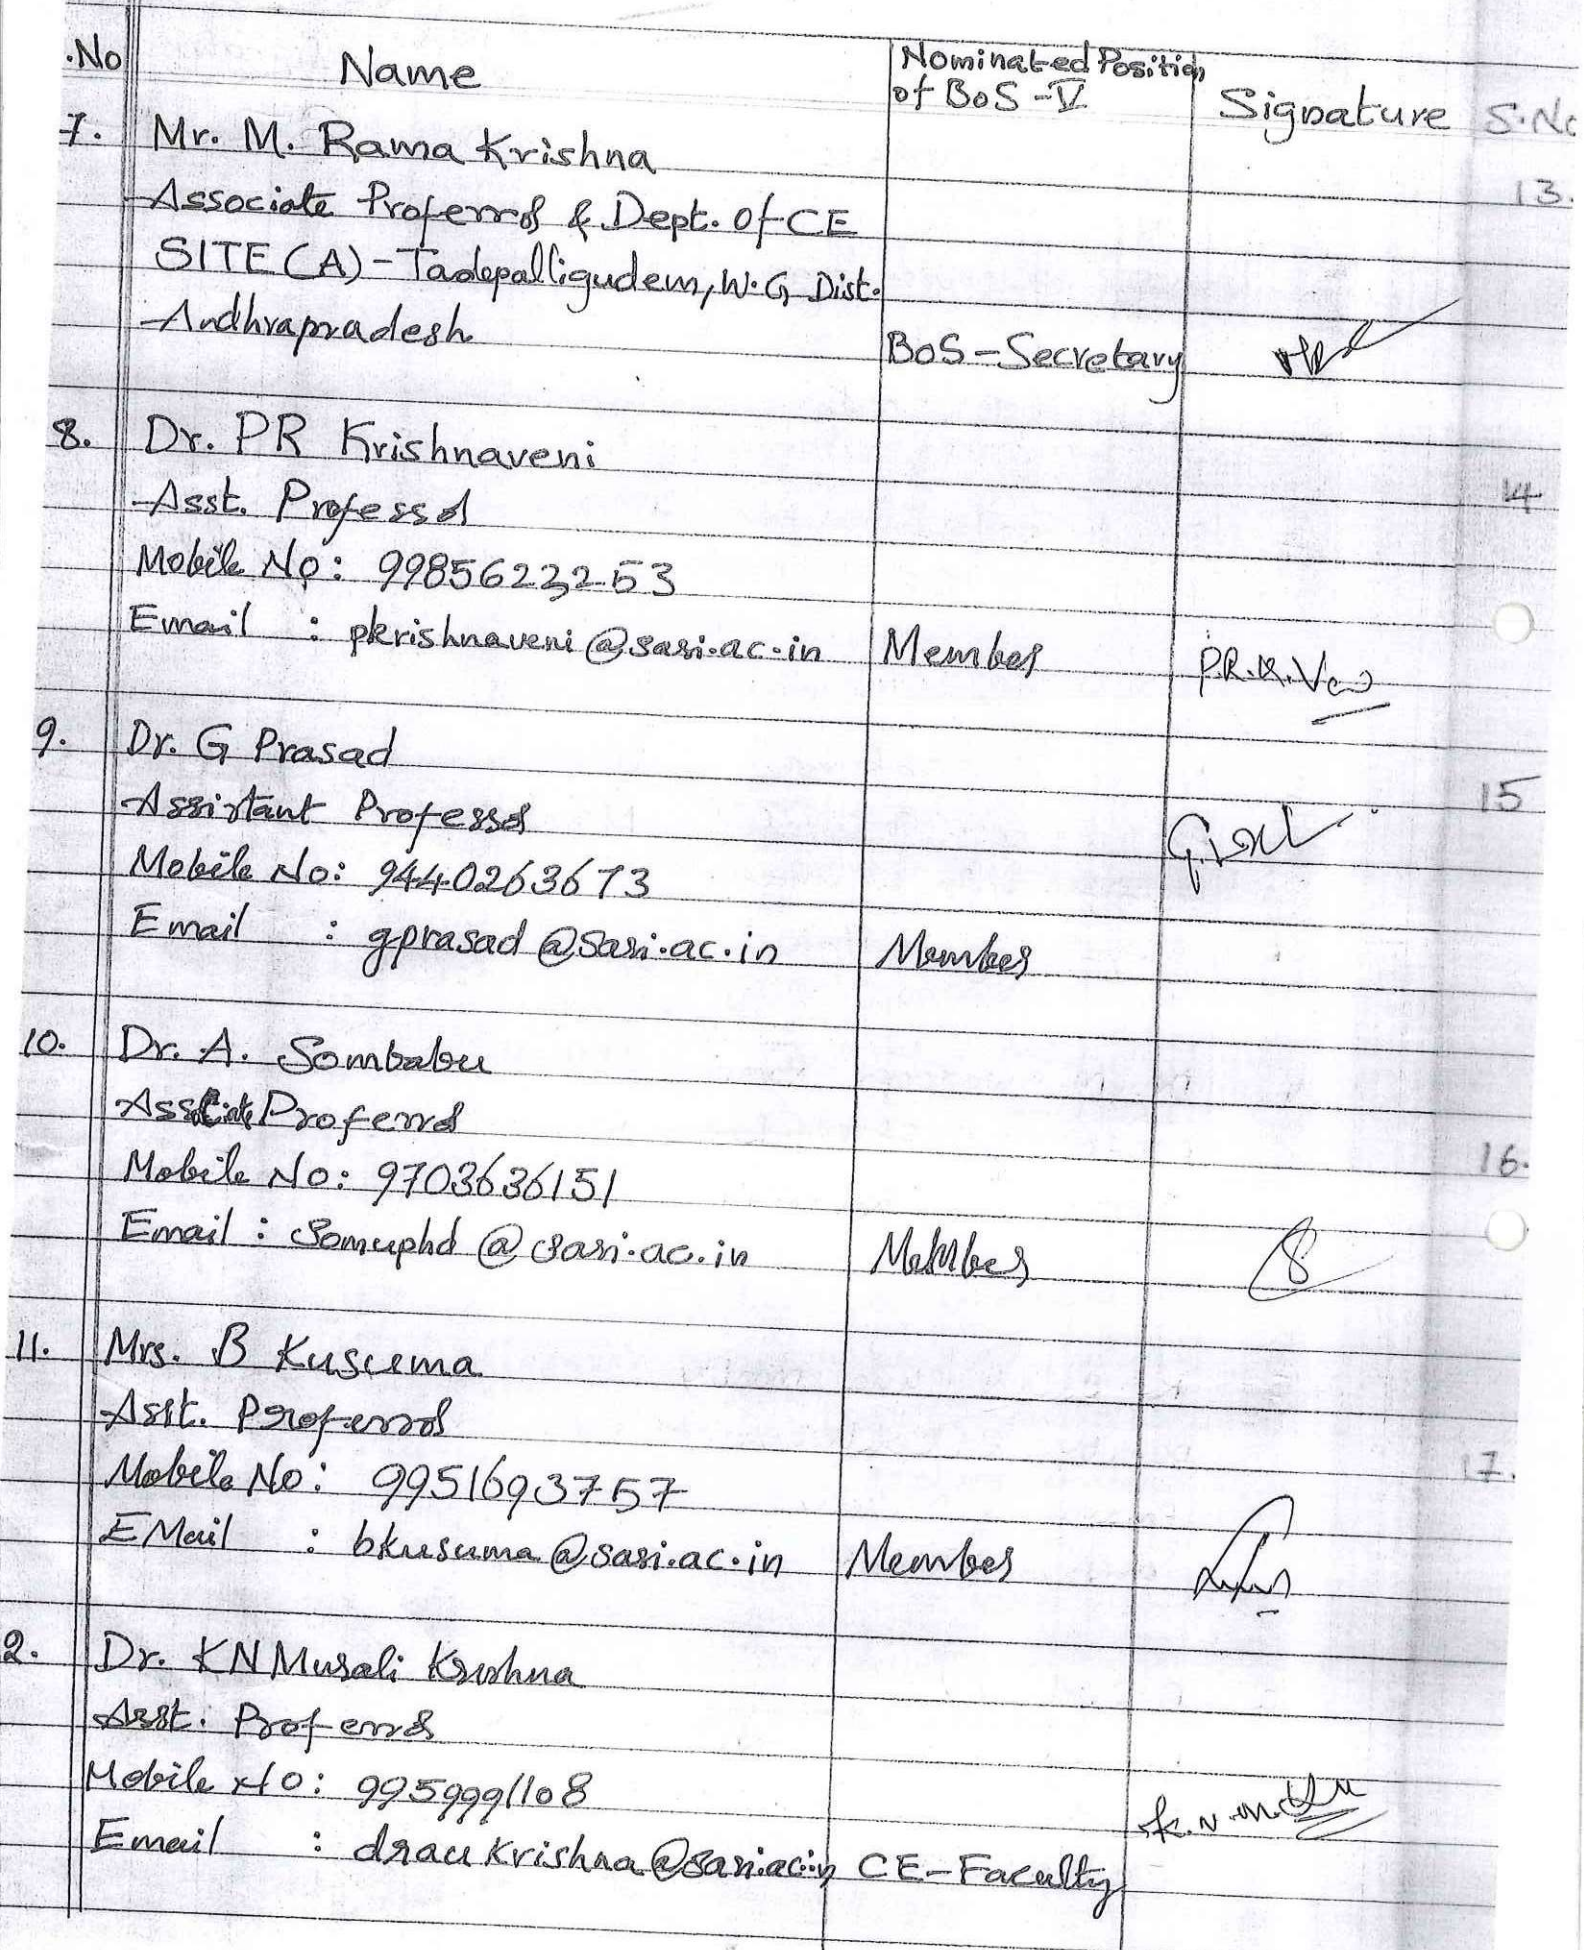 .No Name Nominated Position of BoS-V Signature S.No
7. Mr. M. Rama Krishna
13.
Associate Professor & Dept. of CE
SITE (A) - Tadepalligudem, W.G Dist.
Andhrapradesh BoS-Secretary
8. Dr. PR Krishnaveni
14
Asst. Professor
Mobile No: 9985623253
Email : pkrishnaveni@sasi.ac.in Member P.R.K.Ve
9. Dr. G Prasad
15
Assistant Professor
Mobile No: 9440263673
Email : gprasad@sasi.ac.in Member
10. Dr. A. Sombabu
Associate Professor
16.
Mobile No: 9703636151
Email : Somuphd@sasi.ac.in Member
11. Mrs. B Kusuma
Asst. Professor
17.
Mobile No: 9951693757
EMail : bkusuma@sasi.ac.in Member
2. Dr. KN Murali Krishna
Asst. Professor
Mobile No: 9959991108
Email : draukrishna@sasi.ac.in CE-Faculty